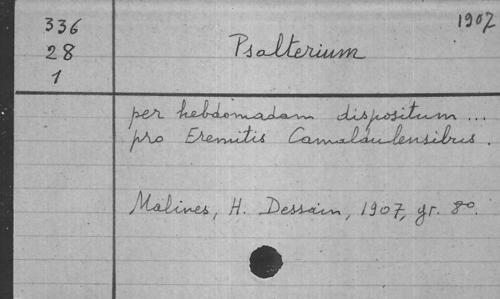 336
28
1
1907
Psalterium
per hebdomadam dispositum ...
pro Eremitis Camaldulensibus.
Malines, H. Dessain, 1907, gr. 8º.